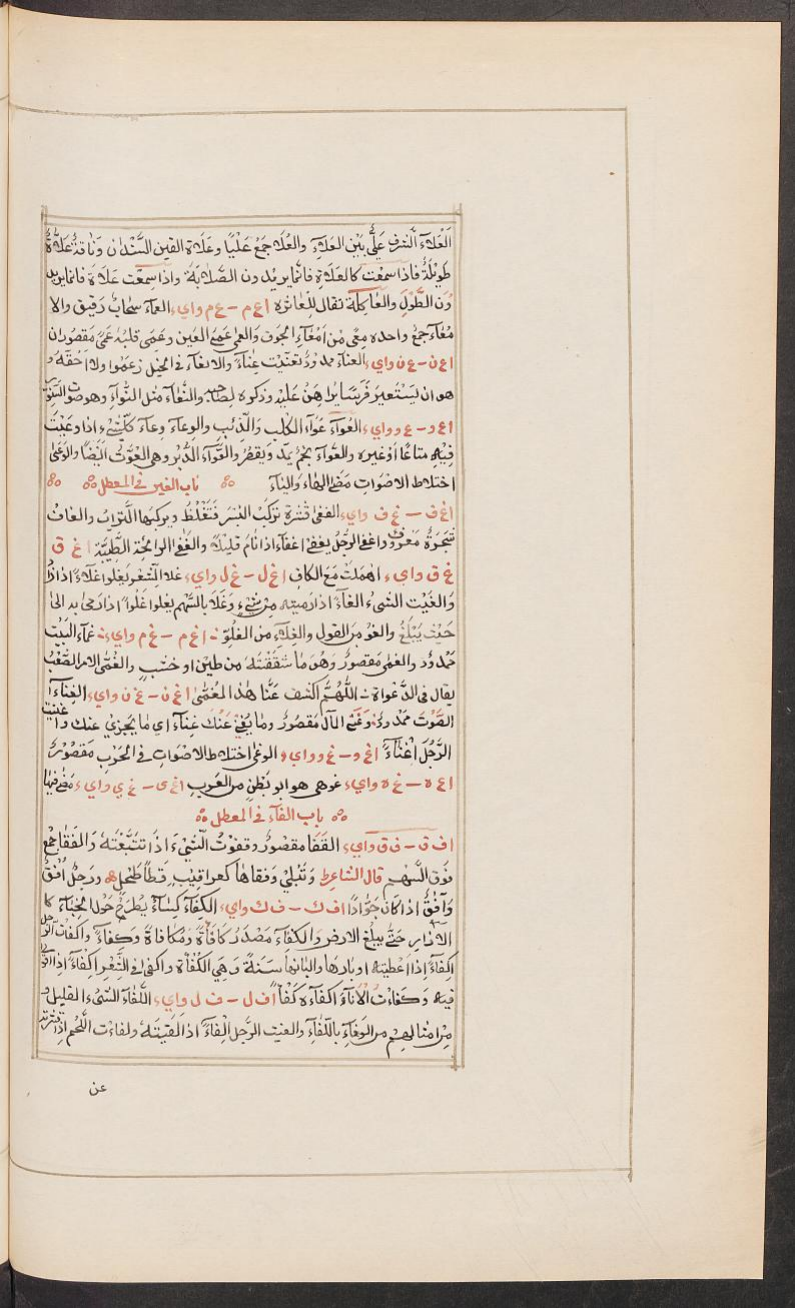 العَلاَءُ الشرف عَلِيٌّ بَيْن العَلاءِ والعُلا جَمعُ عَلْيَا وعَلَاة القين السَّنْدان وناقة عَلَاةٌ
طَوِيْلَةٌ فاذا سمعت كالعَلاةِ فانّما يريدون الصَّلابَةَ واذا سمعت عَلَاة فانما يريد
ون الطُّولَ والعَاكلة تقال للعاثرة اع م – ع م واي العماء سحابٌ رَقيق والا
مْعَاءُ جمعٌ واحده مِعًى مِنْ اَمْعَاءِ الجوف والعمى عَمَى العين وعَمى قلبه عَمًى مَقصُوران
اع ن – ع ن واي العناء ممدودٌ تعنّيت عِناءً والابعاء في الخيل زعموا ولا اَحُقّهُ و
هو ان يستعير فَرَسًا يُراهِنُ عَليه وذكروه لصاحبه والنُعَاءُ مثل النُواءِ وهو صوت السِّنّور
اع و – ع و واي العُواءُ عُوَاءُ الكلب والذئب والوعاءُ وعاءُ كلّ شيء اذا وعَيْتَ
فيهِ متاعًا اَوْ غيره والعَوّاءُ نجمٌ يمد ويقصر والعَوّاءُ الدُّبُر وهى العَوّة ايضًا والوَعَى
اختلاط الاصوات مَضى الهاء والياء ه باب الغين في المعطل ه ه
اغ ف – غ ف واي الغفى قشرة تركب البُسْر فَتَغْلُظُ ويركبها التُراب والغاف
شجرةٌ مَعروف واغفى الرجُل يغفى اغفاءً اذا نام قليلاً والفَغَى الرائحة الطَّيّبَة اغ ق
غ ق واي اهملت مَعَ الكافِ اغ ل – غ ل واي غلا السّعر يَغلوا غلاءً اذا ازداد
والغيْت الشىءَ الغاءً اذا رميته من شيءٍ وغَلا بالسَّهم يغلوا غُلُوًّا اذا رمى به الى
حَيْث يَبْلُغُ واللغْوُ من القول والغِلاءُ من الغُلُوِّ اغ م – غ م واي غماء البَيْت
ممدُود والغمى مَقصورٌ وَهُو مَا سَقَّفْتَهُ من طينٍ او خشبٍ والغُمَّى الامر الصَّعْبُ
يقال في الدَّعواة اللّهُمَّ اكشف عَنّا هٰذا المُغَمَّى اغ ن – غ ن واي الغِناءُ
الصَّوْت ممدودٌ وغِنَى المال مَقصُورٌ وما يُغنى عَنْكَ غِناءً اي مَا يجزى عَنك واغنيت
الرَّجُلَ اغْنَاءً اغ و – غ و واي الوغى اختلاط الاصوات في الحَرْبِ مَقصُورٌ
اغ ه – غ ه واي غوهى هو ابو بَطْنٍ من العَرب اغ ى – غ ي واي مَضى فيها
ه باب الفاء في المعطل ه
اف ق – ف ق واي القَفَا مقصُورٌ وقفوتُ الشيْءَ اذا تَتَبَّعْتَهُ والفقَا جمْع
فوق السّهم قال الشاعر وَنَبْلي وفقاهَا كعراقيب قَطًا طُحْلِ ورَجُلٌ اُفُقٌ
وَآفُقٌ اذا كانَ جَوَادًا اف ك – ف ك واي الكِفَاءُ كِسَاءٌ يُطْرَحُ حَوْل الخِباءِ كا
لازار حَتّى يبلغ الارض والكفاءُ مَصْدَر كَافَأةً ومُكافاةً وكفاءً واكفات الرجل
اِكفاءً اذا اعطيته اوبارها والبانها سَنةً وَهي الكُفْأة واكفى في الشعر اكفاءً اذا اقوى
فيهِ وكفاتُ الاناءَ اكفاءه كَفْأً اف ل – ف ل واي اللَّفَاءُ الشىءُ القليل و
من امثالهم من الوَفاءِ باللّفاءِ والفيت الرَّجل اِلفاءً اذا لقيتَهُ ولفات اللّحم اذا قشرته
عن